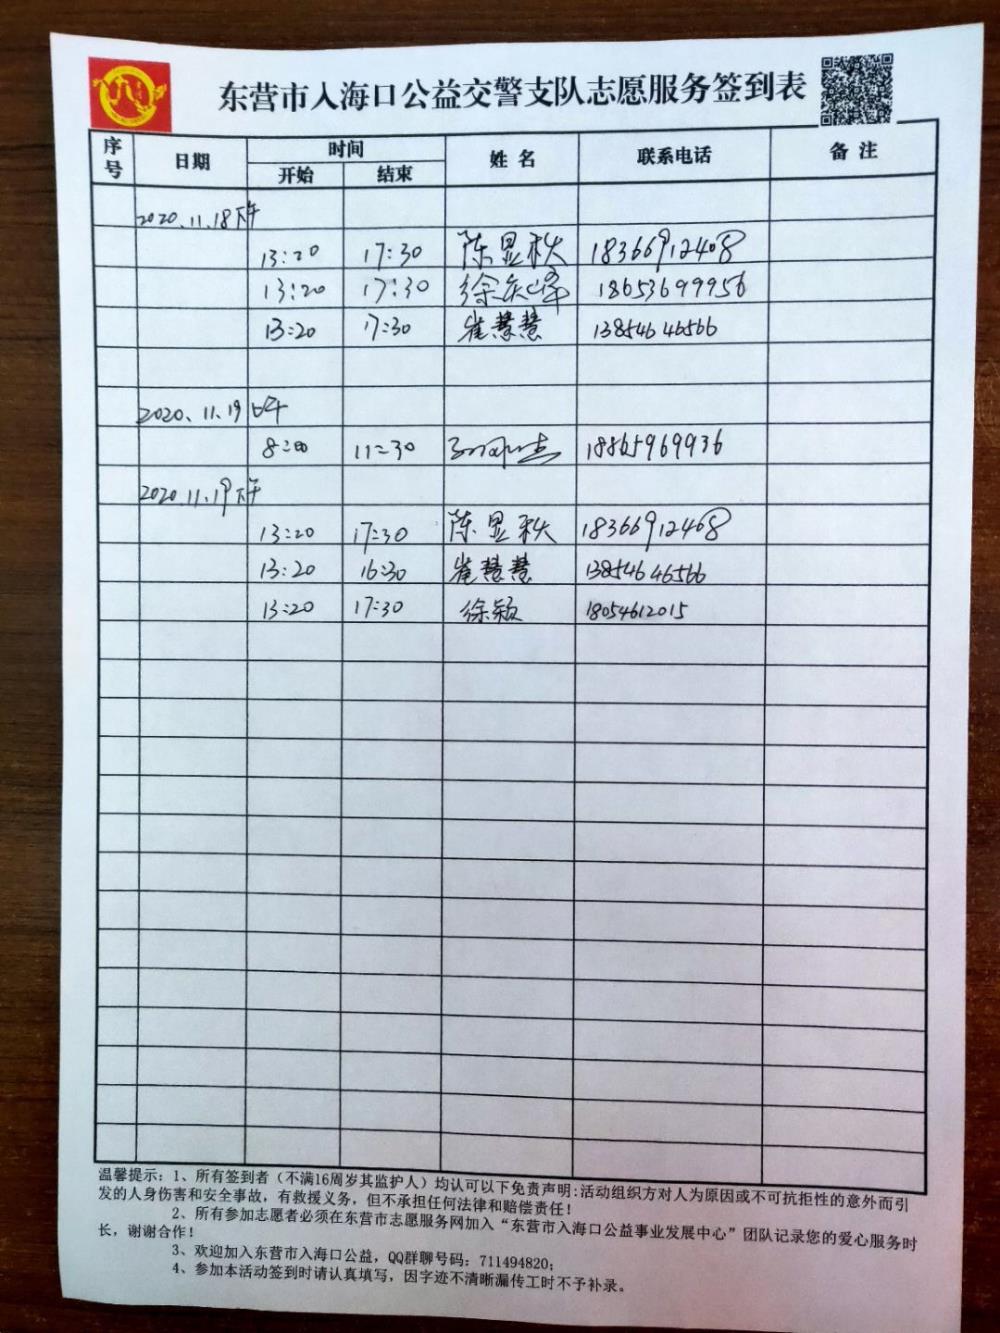 东营市入海口公益交警支队志愿服务签到表
序号 日期 时间 姓 名 联系电话 备 注
开始 结束
2020.11.18下午
13:20 17:30 陈显秋 18366912408
13:20 17:30 徐庆峰 18653699956
13:20 17:30 崔慧慧 13854646566
2020.11.19 上午
8:00 11:30 18865969936
2020.11.19下午
13:20 17:30 陈显秋 18366912408
13:20 16:30 崔慧慧 13854646566
13:20 17:30 徐颖 18054612015
温馨提示：1、所有签到者（不满16周岁其监护人）均认可以下免责声明:活动组织方对人为原因或不可抗拒性的意外而引
发的人身伤害和安全事故，有救援义务，但不承担任何法律和赔偿责任！
2、所有参加志愿者必须在东营市志愿服务网加入“东营市入海口公益事业发展中心”团队记录您的爱心服务时
长，谢谢合作！
3、欢迎加入东营市入海口公益，QQ群聊号码：711494820；
4、参加本活动签到时请认真填写，因字迹不清晰漏传工时不予补录。